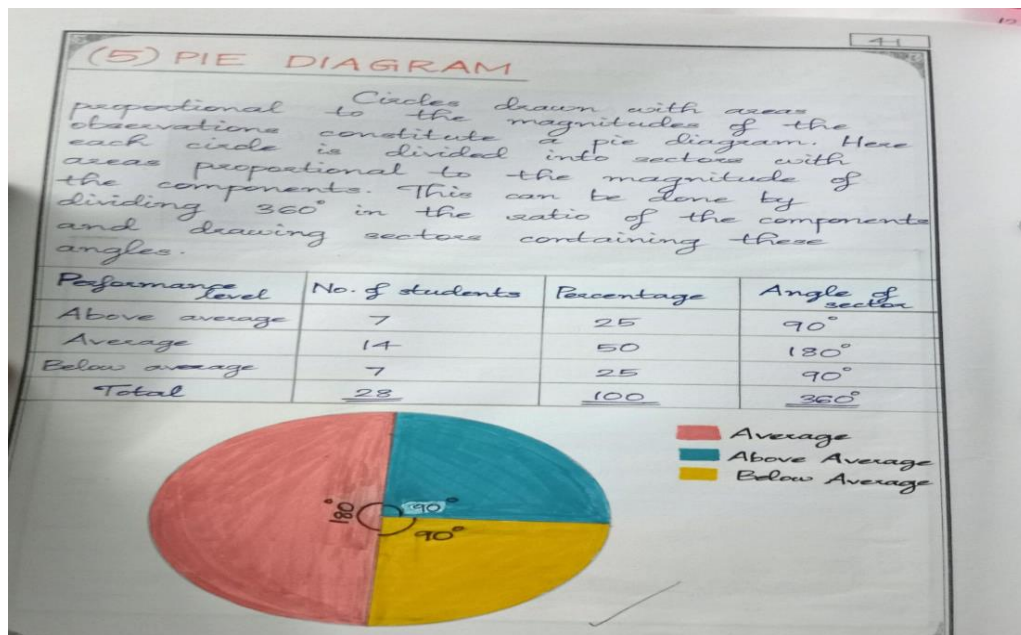 41
(5) PIE DIAGRAM
Circles drawn with areas
proportional to the magnitudes of the
observations constitute a pie diagram. Here
each circle is divided into sectors with
areas proportional to the magnitude of
the components. This can be done by
dividing 360° in the ratio of the components
and drawing sectors containing these
angles.
Performance level No. of students Percentage Angle of sector
Above average 7 25 90°
Average 14 50 180°
Below average 7 25 90°
Total 28 100 360°
Average
Above Average
Below Average
180°
90°
90°